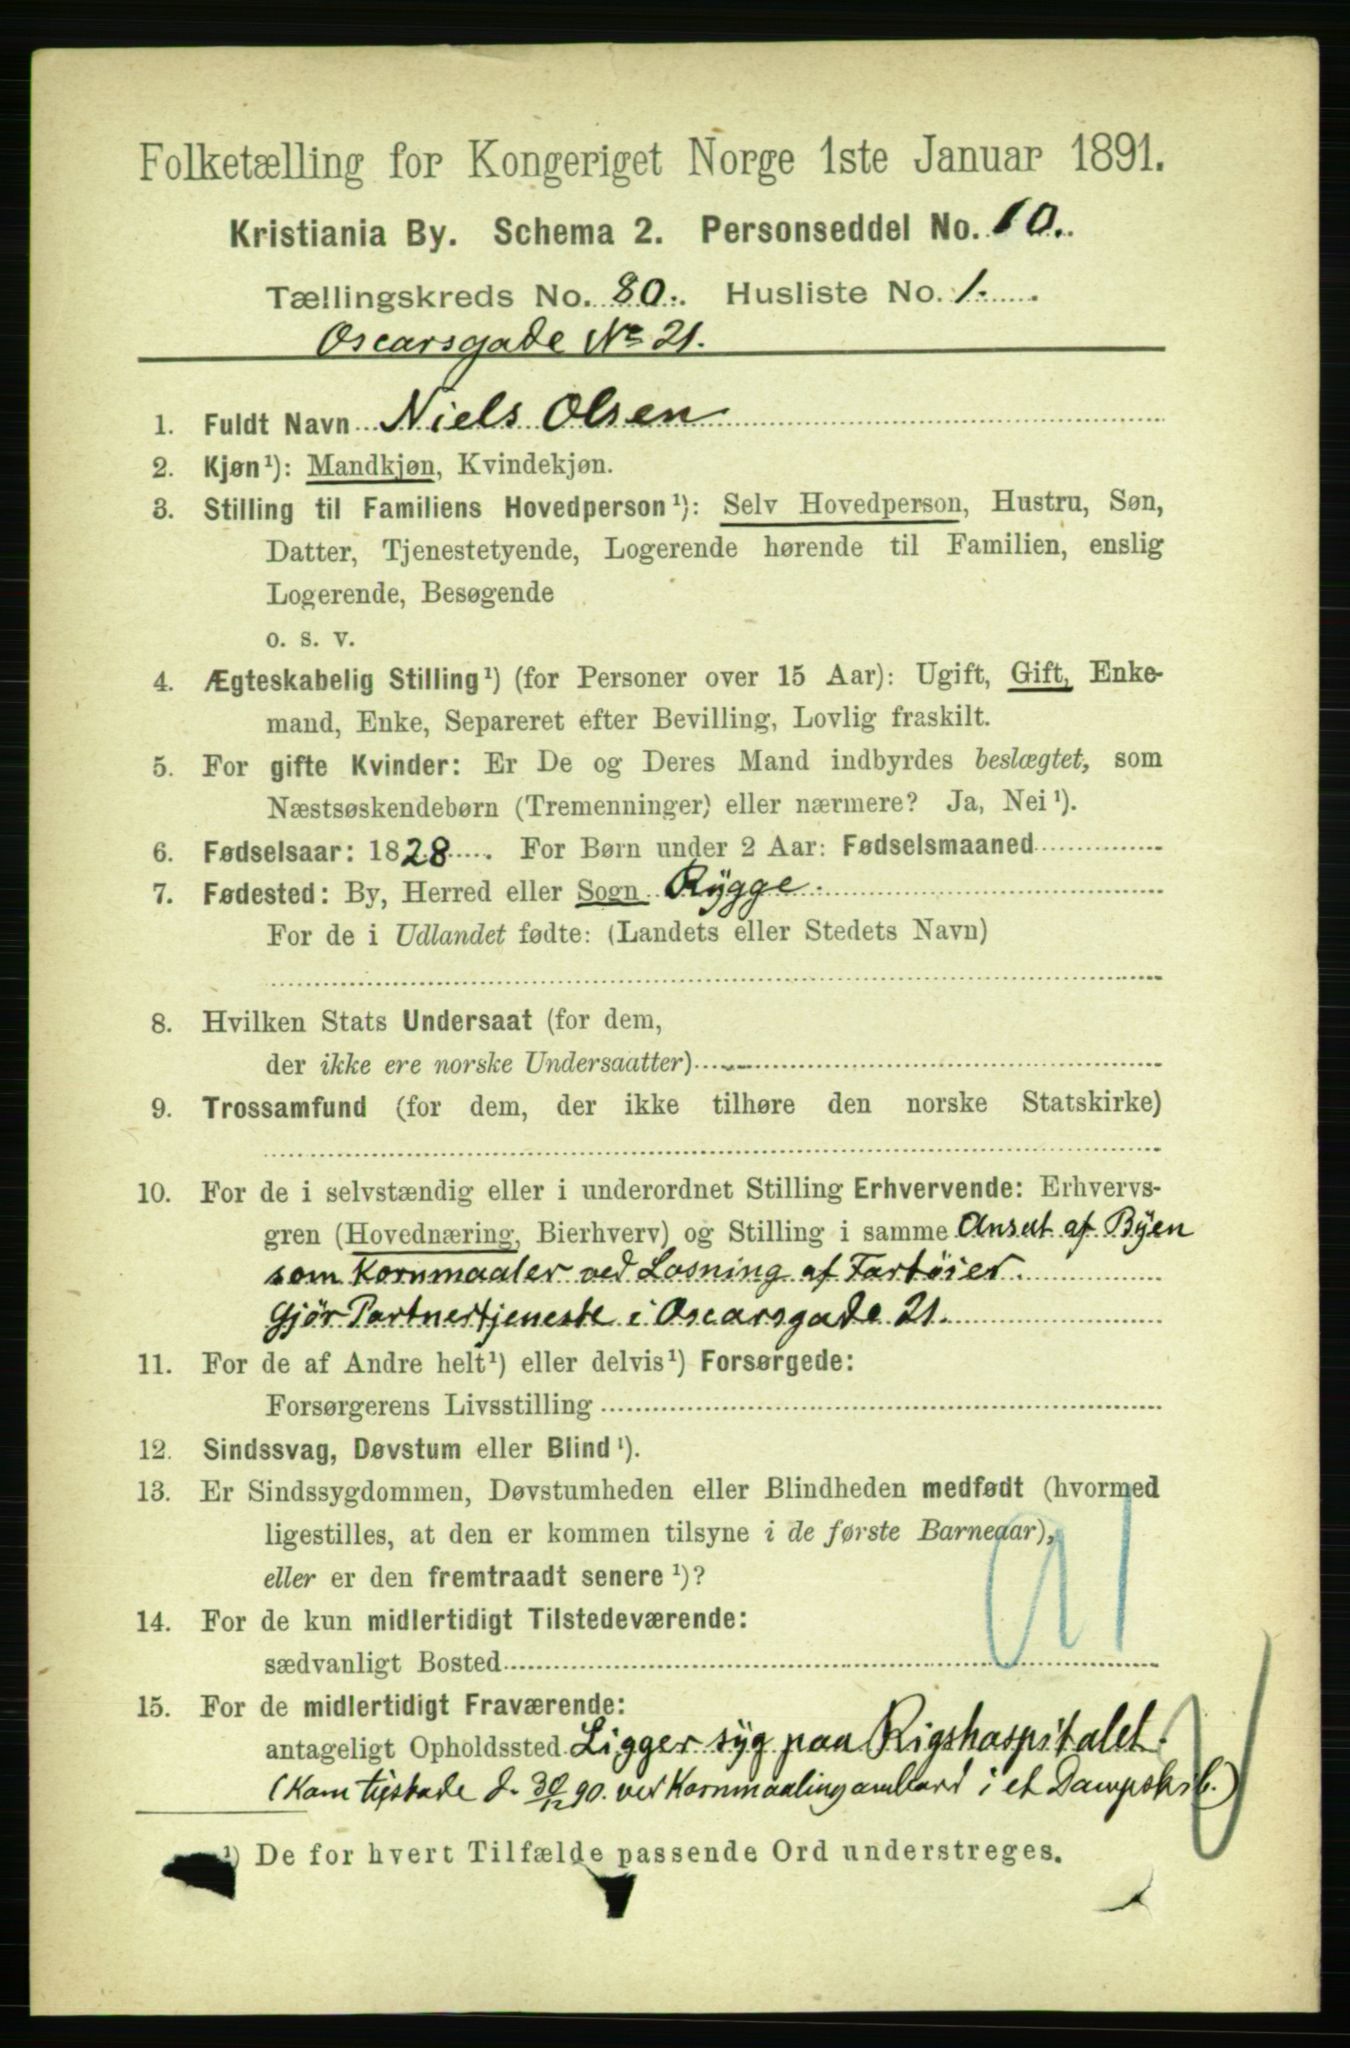 Folketælling for Kongeriget Norge 1ste Januar 1891.
Kristiania By. Schema 2. Personseddel No. 10.
Tællingskreds No. 80. Husliste No. 1.
Oscarsgade No 21.
1. Fuldt Navn Niels Olsen
2. Kjøn¹): Mandkjøn, Kvindekjøn.
3. Stilling til Familiens Hovedperson¹): Selv Hovedperson, Hustru, Søn,
Datter, Tjenestetyende, Logerende hørende til Familien, enslig
Logerende, Besøgende
o. s. v.
4. Ægteskabelig Stilling¹) (for Personer over 15 Aar): Ugift, Gift, Enke-
mand, Enke, Separeret efter Bevilling, Lovlig fraskilt.
5. For gifte Kvinder: Er De og Deres Mand indbyrdes beslægtet, som
Næstsøskendebørn (Tremenninger) eller nærmere? Ja, Nei¹).
6. Fødselsaar: 1828. For Børn under 2 Aar: Fødselsmaaned
7. Fødested: By, Herred eller Sogn Rygge.
For de i Udlandet fødte: (Landets eller Stedets Navn)
8. Hvilken Stats Undersaat (for dem,
der ikke ere norske Undersaatter)
9. Trossamfund (for dem, der ikke tilhøre den norske Statskirke)
10. For de i selvstændig eller i underordnet Stilling Erhvervende: Erhvervs-
gren (Hovednæring, Bierhverv) og Stilling i samme Ansat af Byen
som Kornmaaler ved Losning af Fartöier.
Gjör Portnertjeneste i Oscarsgade 21.
11. For de af Andre helt¹) eller delvis¹) Forsørgede:
Forsørgerens Livsstilling
12. Sindssvag, Døvstum eller Blind¹).
13. Er Sindssygdommen, Døvstumheden eller Blindheden medfødt (hvormed
ligestilles, at den er kommen tilsyne i de første Barneaar),
eller er den fremtraadt senere¹)?
14. For de kun midlertidigt Tilstedeværende:
sædvanligt Bosted
15. For de midlertidigt Fraværende:
antageligt Opholdssted Ligger syg paa Rigshospitalet.
(Kom tilskade d. 30/12 90. ved Kornmaaling ombord i et Dampskib.)
¹) De for hvert Tilfælde passende Ord understreges.